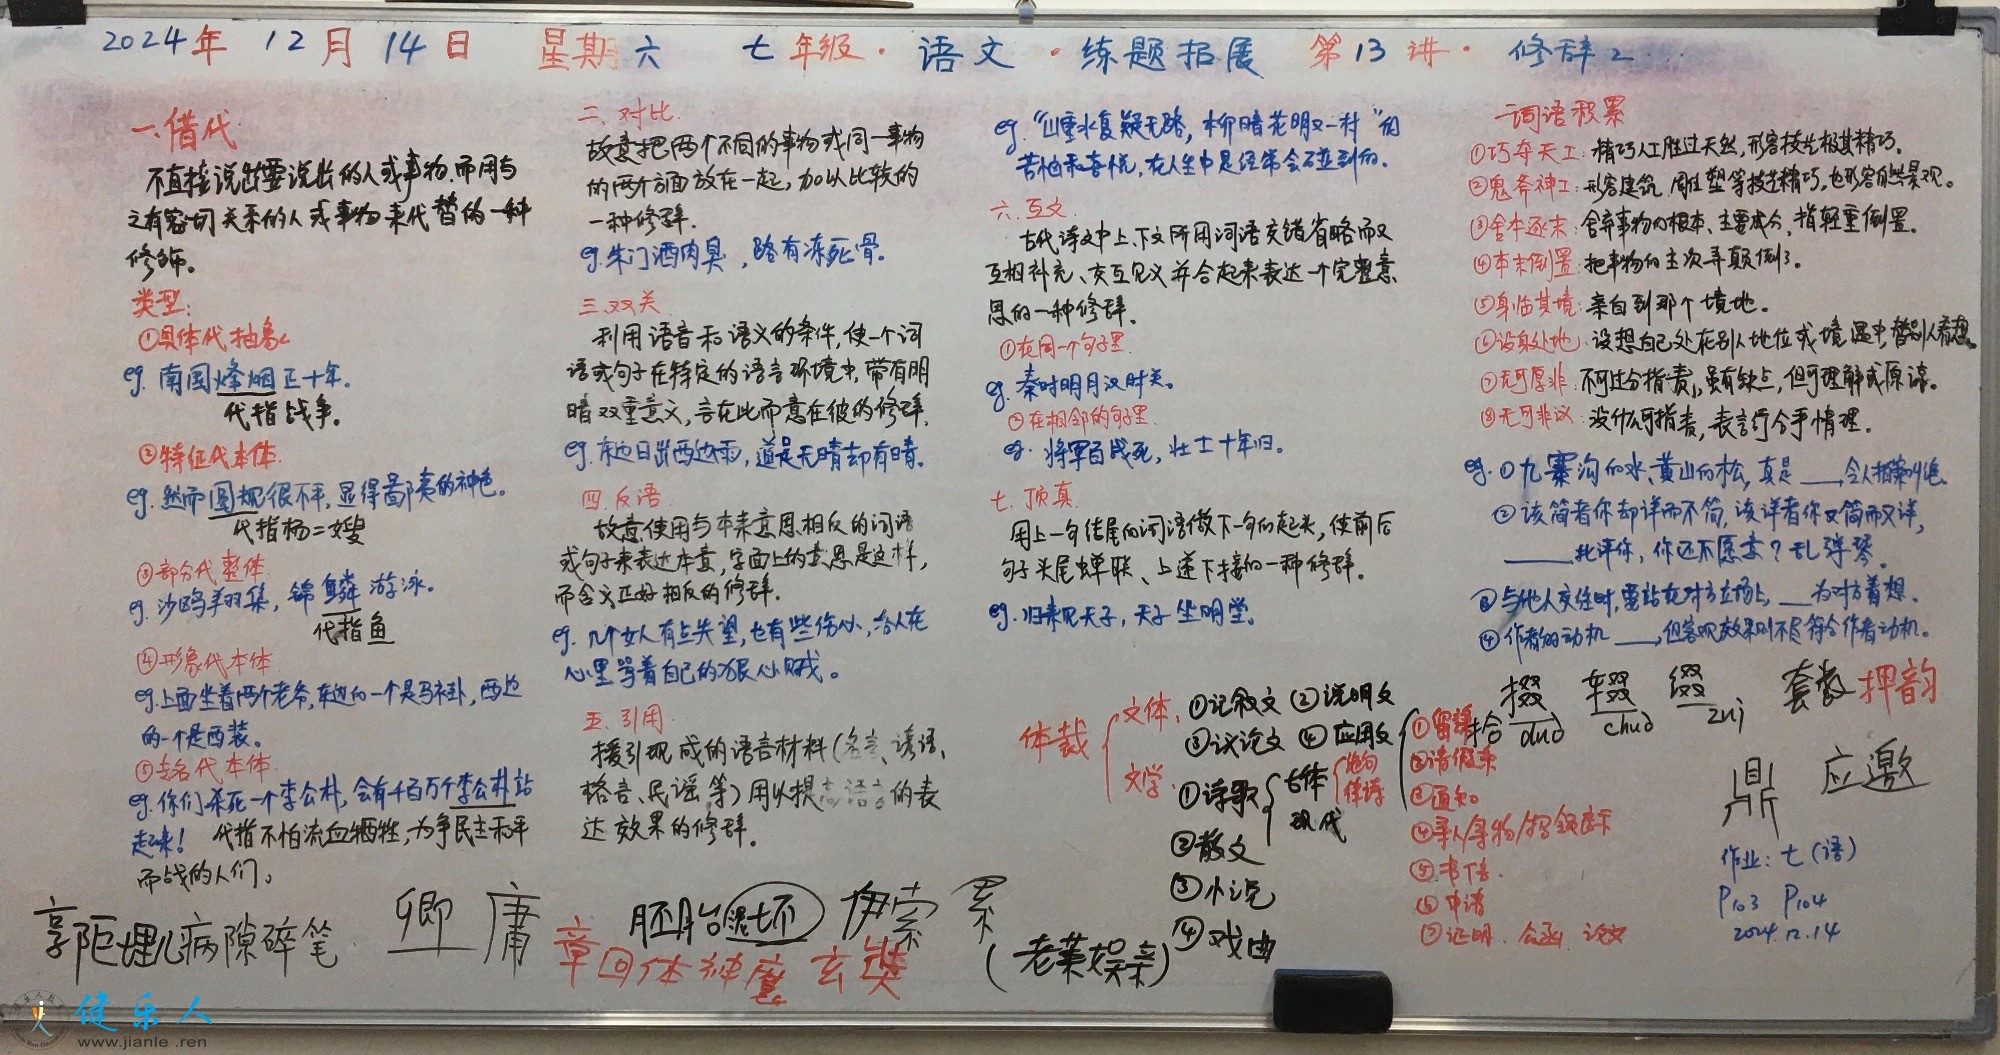 2024年 12月 14日 星期六 七年级·语文·练题拓展 第13讲·修辞2
一.借代
不直接说出要说出的人或事物,而用与
之有密切关系的人或事物来代替的一种
修饰。
类型:
①具体代抽象
eg. 南国烽烟正十年.
代指战争。
②特征代本体.
eg. 然而圆规很不平,显得鄙夷的神色。
代指杨二嫂
③部分代整体
eg. 沙鸥翔集,锦鳞游泳。
代指鱼
④形象代本体
eg.上面坐着两个老爷,东边的一个是马褂,西边
的一个是西装。
⑤专名代本体.
eg.你们杀死一个李公朴,会有千百万个李公朴站
起来! 代指不怕流血牺牲,为争民主和平
而战的人们。
二.对比.
故意把两个不同的事物或同一事物
的两个方面放在一起,加以比较的
一种修辞.
eg.朱门酒肉臭,路有冻死骨。
三.双关
利用语音和语义的条件,使一个词
语或句子在特定的语言环境中,带有明
暗双重意义,言在此而意在彼的修辞.
eg.东边日出西边雨,道是无晴却有晴。
四.反语
故意使用与本来意思相反的词语
或句子来表达本意,字面上的意思是这样,
而含义正好相反的修辞.
eg. 几个女人有点失望,也有些伤心,各人在
心里骂着自己的狠心贼。
五.引用
援引现成的语言材料(名言、谚语、
格言、民谣等)用以提高语言的表
达效果的修辞.
eg."山重水复疑无路,柳暗花明又一村"的
苦恼和喜悦,在人生中是经常会碰到的.
六.互文
古代诗文中上、下文所用词语交错省略而又
互相补充、交互见义并合起来表达一个完整意
思的一种修辞。
①在同一个句子里
eg. 秦时明月汉时关。
②在相邻的句子里.
eg. 将军百战死,壮士十年归。
七.顶真
用上一句结尾的词语做下一句的起头,使前后
句子头尾蝉联、上递下接的一种修辞。
eg.归来见天子,天子坐明堂。
词语积累
①巧夺天工:精巧人工胜过天然,形容技艺极其精巧。
②鬼斧神工:形容建筑、雕塑等技艺精巧,也形容自然景观。
③舍本逐末:舍弃事物的根本、主要成分,指轻重倒置。
④本末倒置:把事物的主次弄颠倒了。
⑤身临其境:亲自到那个境地。
⑥设身处地:设想自己处在别人地位或境遇中,替别人着想。
⑦无可厚非:不可过分指责,虽有缺点,但可理解或原谅。
⑧无可非议:没什么可指责,表言行合乎情理。
eg.①九寨沟的水、黄山的松,真是____,令人拍案叫绝
②该简者你却详而不简,该详者你又简而又详,
____批评你,你还不愿意?乱弹琴。
③与他人交往时,要站在对方立场上,__为对方着想.
④作者的动机____,但客观效果则不尽符合作者动机。
掇 辍 缀 套数 押韵
拾 duō chuò zuì
鼎 应邀
体裁
文体: ①记叙文 ②说明文
③议论文 ④应用文
文学: ①诗歌 古体 绝句 律诗
现代
②散文
③小说
④戏曲
②请假条
③通知
④寻人/寻物/招领启示
⑤书信.
⑥申请
⑦证明、公函、论文
作业:七(语)
P103 P104
2024.12.14
郭巨埋儿 病隙碎笔 卿 庸 胚胎 泥坯 伊索 累
章回体 神魔 玄奘 (老莱娱亲)
健乐人
www.jianle.ren